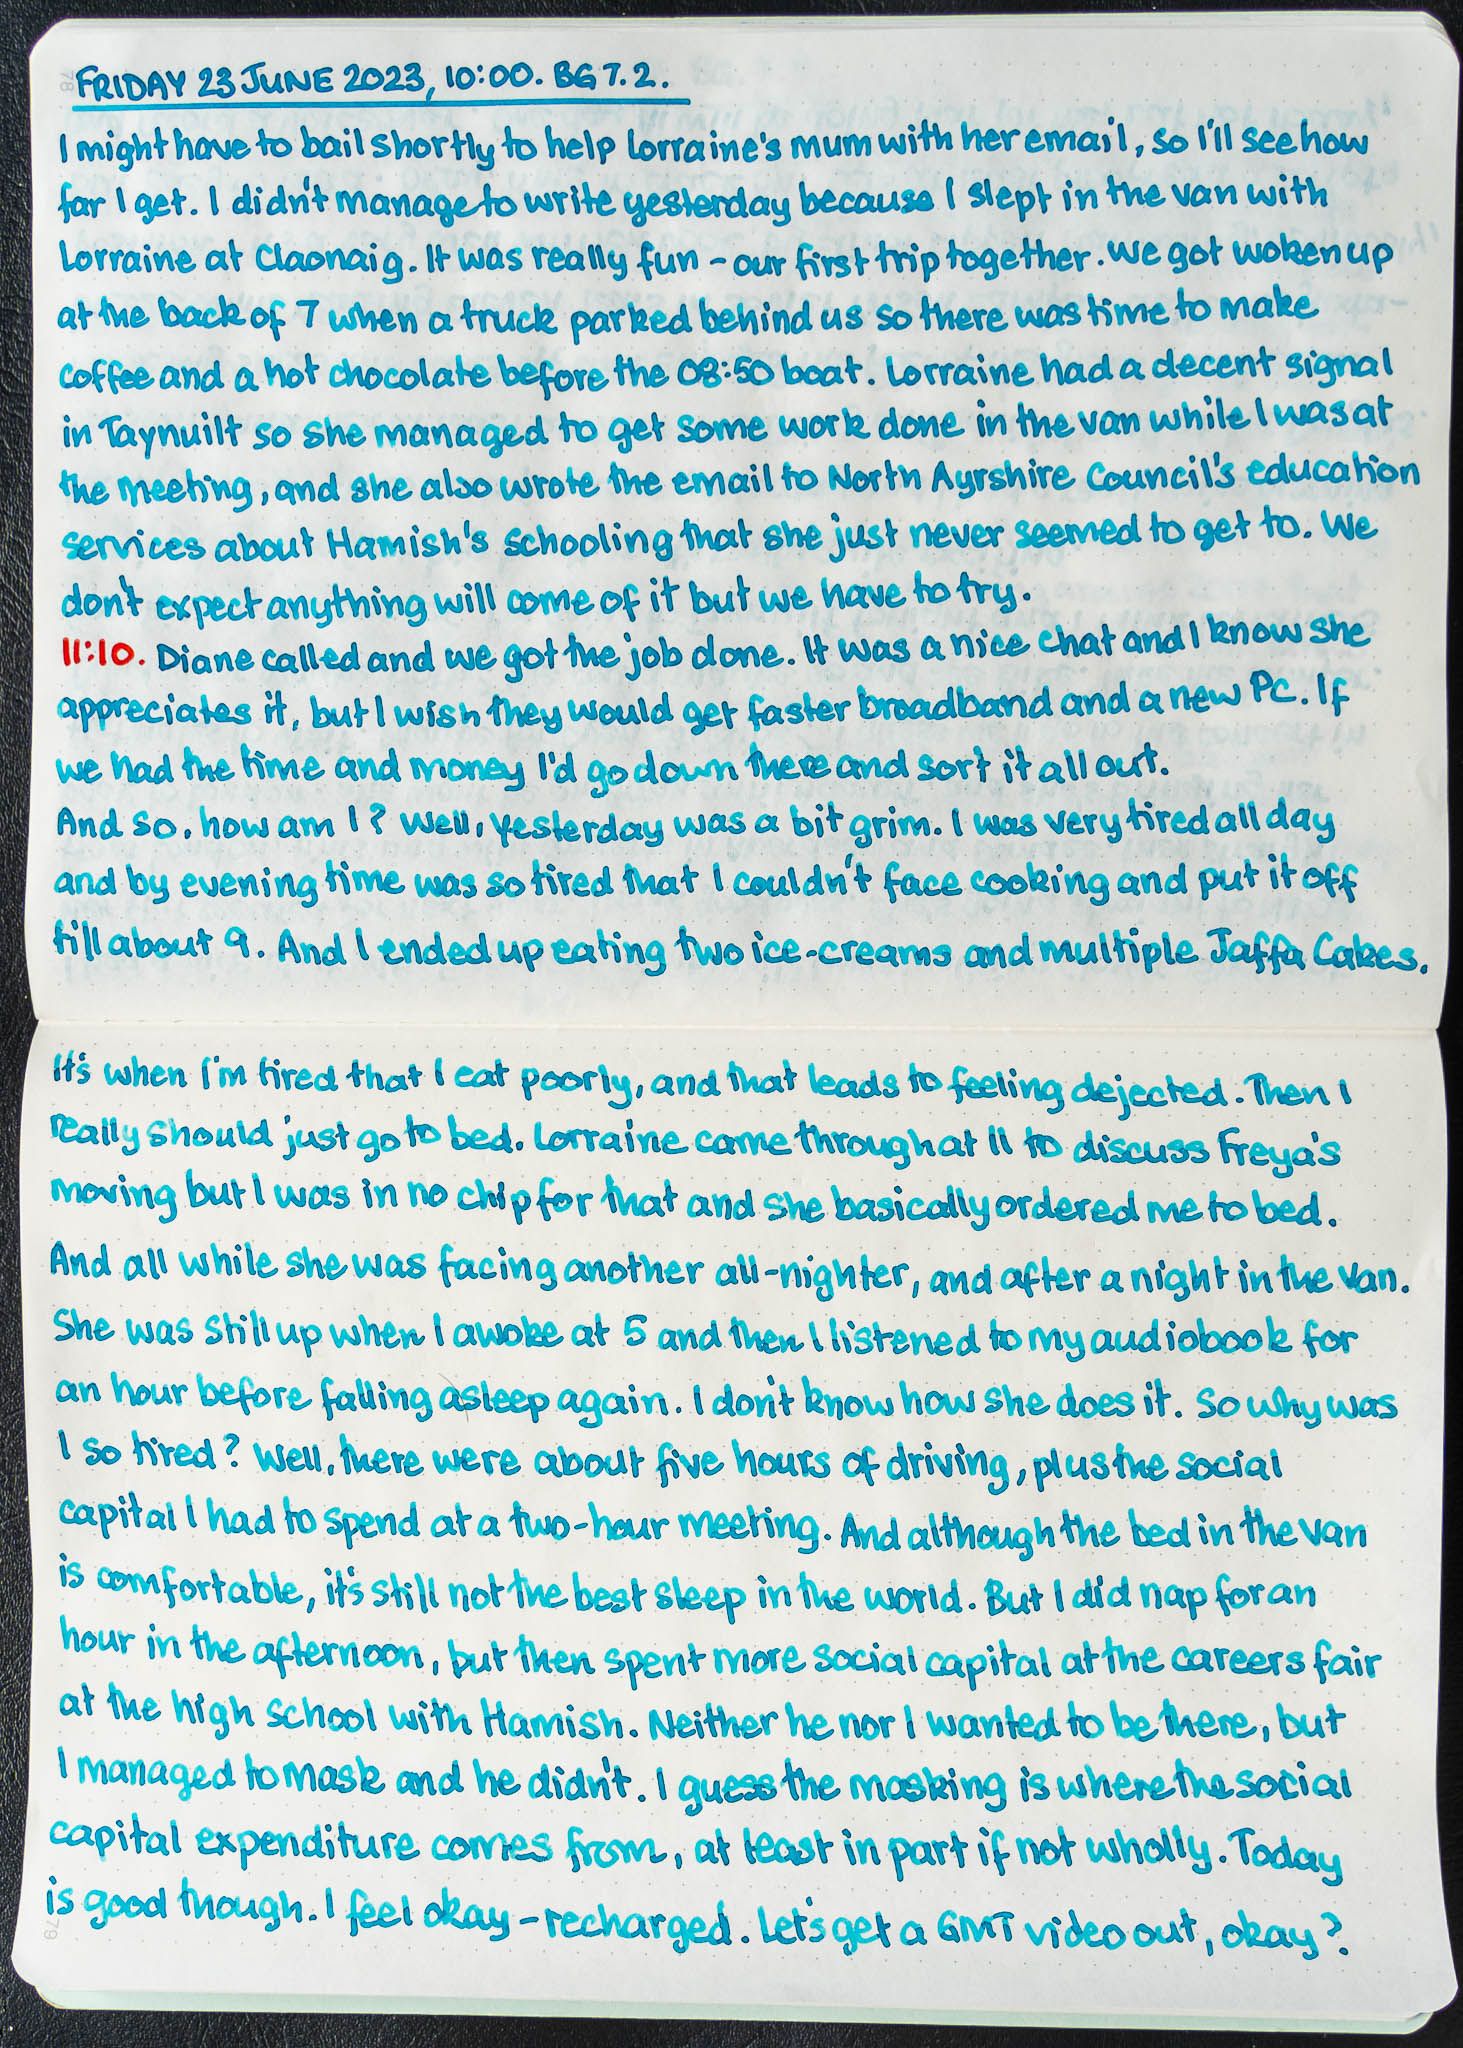 78
FRIDAY 23 JUNE 2023, 10:00. BG 7.2.
I might have to bail shortly to help Lorraine's mum with her email, so I'll see how
far I get. I didn't manage to write yesterday because I slept in the van with
Lorraine at Claonaig. It was really fun - our first trip together. We got woken up
at the back of 7 when a truck parked behind us so there was time to make
coffee and a hot chocolate before the 08:50 boat. Lorraine had a decent signal
in Taynuilt so she managed to get some work done in the van while I was at
the meeting, and she also wrote the email to North Ayrshire Council's education
services about Hamish's schooling that she just never seemed to get to. We
don't expect anything will come of it but we have to try.
11:10. Diane called and we got the job done. It was a nice chat and I know she
appreciates it, but I wish they would get faster broadband and a new PC. If
we had the time and money I'd go down there and sort it all out.
And so, how am I? Well, yesterday was a bit grim. I was very tired all day
and by evening time was so tired that I couldn't face cooking and put it off
till about 9. And I ended up eating two ice-creams and multiple Jaffa Cakes.
It's when I'm tired that I eat poorly, and that leads to feeling dejected. Then I
really should just go to bed. Lorraine came through at 11 to discuss Freya's
moving but I was in no chip for that and she basically ordered me to bed.
And all while she was facing another all-nighter, and after a night in the van.
She was still up when I awoke at 5 and then I listened to my audiobook for
an hour before falling asleep again. I don't know how she does it. So why was
I so tired? Well, there were about five hours of driving, plus the social
capital I had to spend at a two-hour meeting. And although the bed in the van
is comfortable, it's still not the best sleep in the world. But I did nap for an
hour in the afternoon, but then spent more social capital at the careers fair
at the high school with Hamish. Neither he nor I wanted to be there, but
I managed to mask and he didn't. I guess the masking is where the social
capital expenditure comes from, at least in part if not wholly. Today
is good though. I feel okay - recharged. Let's get a GMT video out, okay?
79